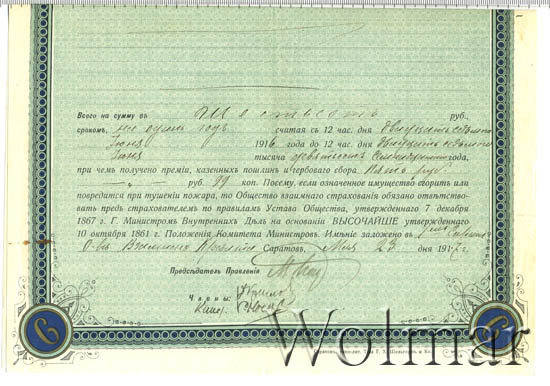 Всего на сумму въ Шестьсотъ руб.,
срокомъ, на одинъ годъ считая съ 12 час. дня Двадцать седьмого
Іюня 1916 года до 12 час. дня Двадцать седьмого
Іюня тысяча девятьсотъ Семнадцатого года,
при чемъ получено преміи, казенныхъ пошлинъ и гербового сбора Пять руб.
руб. 99 коп. Посему, если означенное имущество сгоритъ или
повредится при тушеніи пожара, то Общество взаимнаго страхованія обязано отвѣтство-
вать предъ страхователемъ по правиламъ Устава Общества, утвержденнаго 7 декабря
1867 г. Г. Министромъ Внутреннихъ Дѣлъ на основаніи ВЫСОЧАЙШЕ утвержденнаго
10 октября 1861 г. Положенія Комитета Министровъ. Имѣніе заложено въ
О-вѣ Взаимнаго Кредита Саратовъ, 23 дня 191 г.
Предсѣдатель Правленія
Члены:
С С
Wolmar